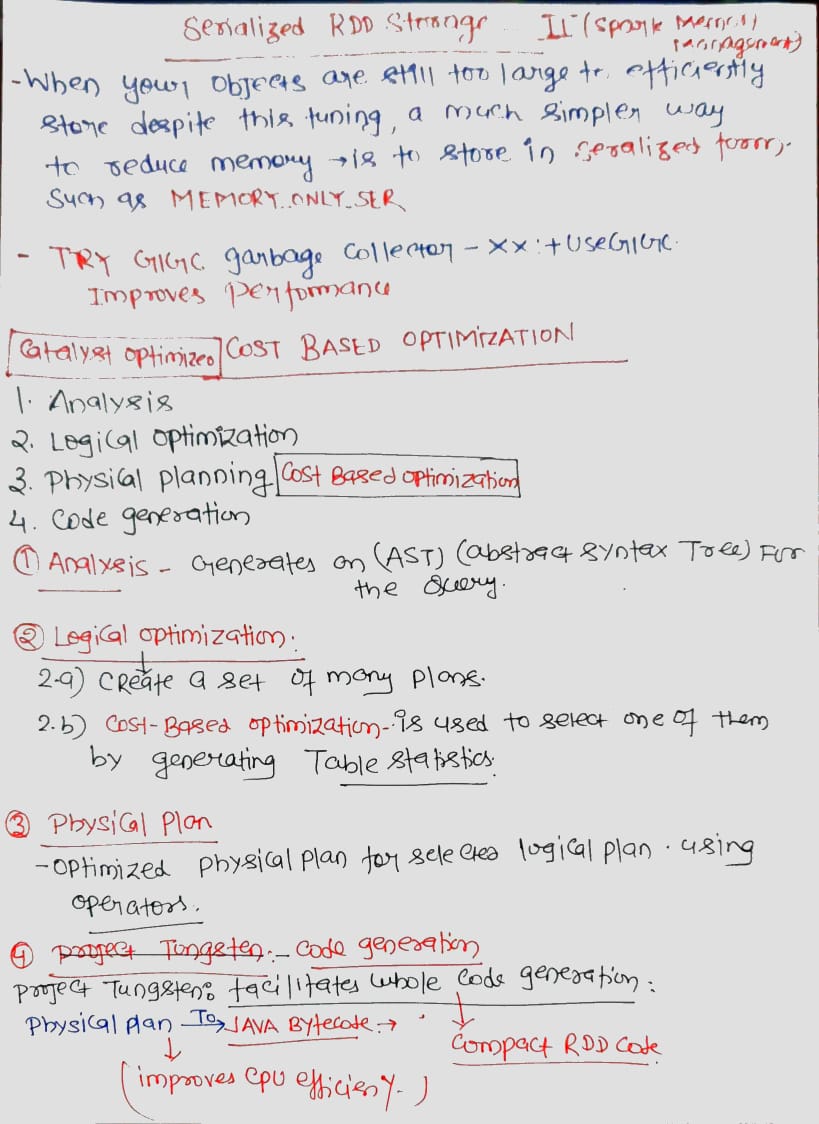 Serialized RDD Storage II (Spark Memory
management)
- When your objects are still too large to efficiently
store despite this tuning, a much simpler way
to reduce memory → is to store in seralized form,
Such as MEMORY_ONLY_SER
- TRY G1GC garbage collector - XX:+UseG1GC.
Improves performance
Catalyst optimizeo COST BASED OPTIMIZATION
1. Analysis
2. Logical optimization
3. Physical planning Cost Based optimization
4. Code generation
① Analysis - Generates an (AST) (abstract syntax Tree) For
the Query.
② Logical optimization:
2.a) Create a set of many plans.
2.b) Cost-Based optimization - is used to select one of them
by generating Table statistics.
③ Physical Plan
- optimized physical plan for selected logical plan. using
operators.
④ project Tungsten. - Code generation
project Tungsten: facilitates whole code generation:
Physical plan To → JAVA Bytecode →
Compact RDD Code
(improves CPU efficieny.)